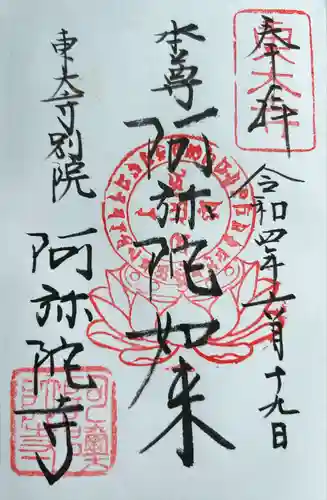 奉拝
令和四年六月十九日
本尊
阿弥陀如来
東大寺別院
阿弥陀寺